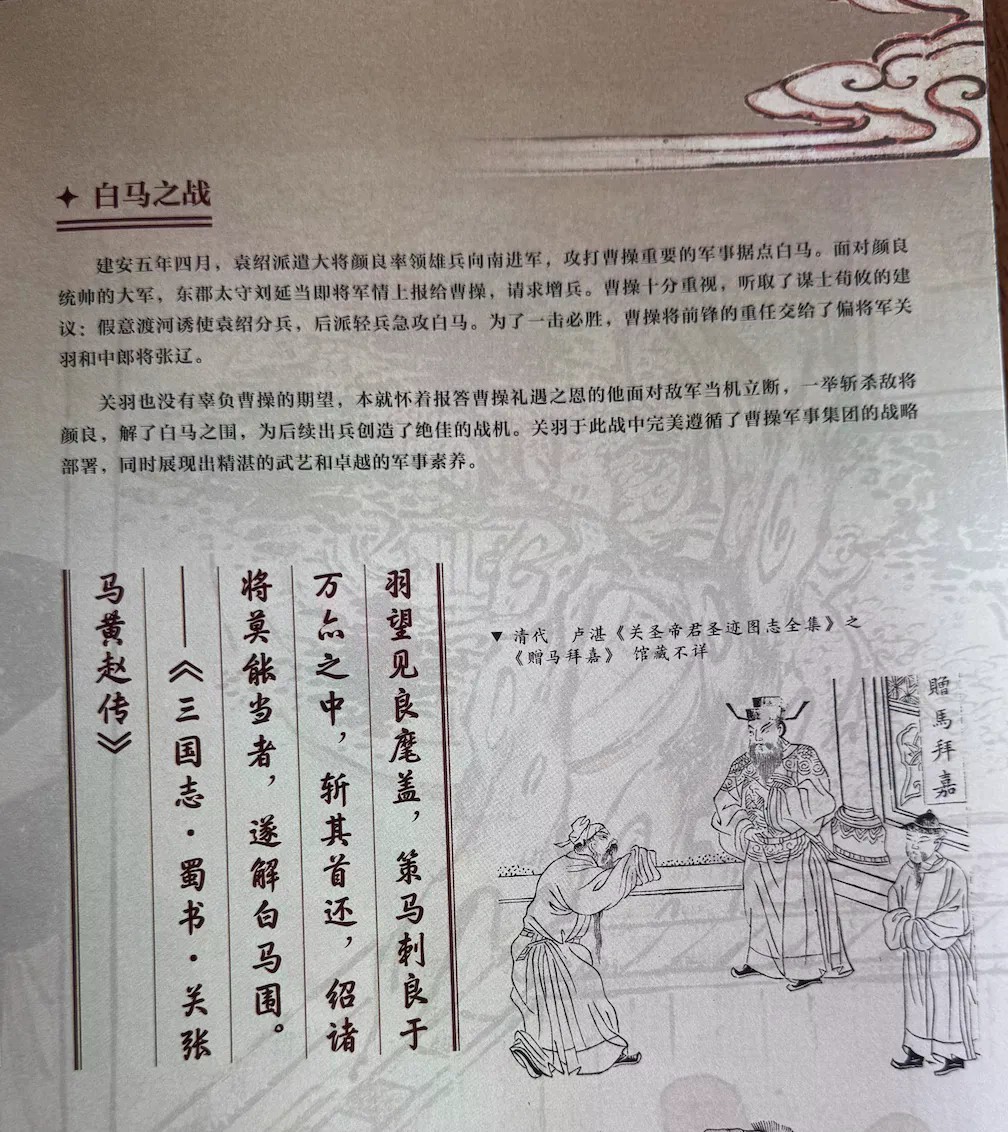 白马之战
建安五年四月，袁绍派遣大将颜良率领雄兵向南进军，攻打曹操重要的军事据点白马。面对颜良
统帅的大军，东郡太守刘延当即将军情上报给曹操，请求增兵。曹操十分重视，听取了谋士荀攸的建
议：假意渡河诱使袁绍分兵，后派轻兵急攻白马。为了一击必胜，曹操将前锋的重任交给了偏将军关
羽和中郎将张辽。
关羽也没有辜负曹操的期望，本就怀着报答曹操礼遇之恩的他面对敌军当机立断，一举斩杀敌将
颜良，解了白马之围，为后续出兵创造了绝佳的战机。关羽于此战中完美遵循了曹操军事集团的战略
部署，同时展现出精湛的武艺和卓越的军事素养。
羽望见良麾盖，策马刺良于
万众之中，斩其首还，绍诸
将莫能当者，遂解白马围。
——《三国志·蜀书·关张
马黄赵传》
▼ 清代 卢湛《关圣帝君圣迹图志全集》之
《赠马拜嘉》 馆藏不详
贈馬拜嘉